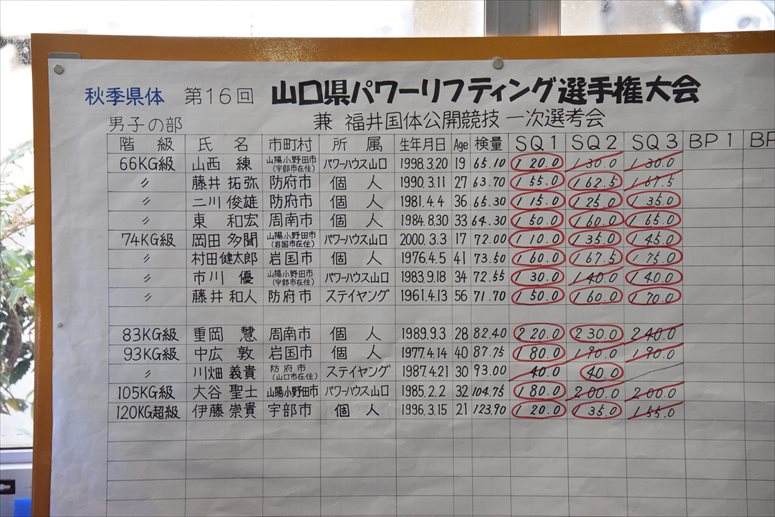 秋季県体 第16回 山口県パワーリフティング選手権大会
男子の部 兼 福井国体公開競技 一次選考会
階級 氏名 市町村 所属 生年月日 Age 検量 SQ1 SQ2 SQ3 BP1 BP
66KG級 山西 練 山陽小野田市(宇部市在住) パワーハウス山口 1998.3.20 19 65.10 120.0 130.0 130.0
〃 藤井 拓弥 防府市 個人 1990.3.11 27 63.70 155.0 162.5 167.5
〃 二川 俊雄 防府市 個人 1981.4.4 36 65.30 115.0 125.0 135.0
〃 東 和宏 周南市 個人 1984.8.30 33 64.30 150.0 160.0 165.0
74KG級 岡田 多聞 山陽小野田市(岩国市在住) パワーハウス山口 2000.3.3 17 72.00 110.0 135.0 145.0
〃 村田健太郎 岩国市 個人 1976.4.5 41 73.50 160.0 167.5 175.0
〃 市川 優 山陽小野田市(宇部市在住) パワーハウス山口 1983.9.18 34 72.55 130.0 140.0 140.0
〃 藤井 和人 防府市 ステイヤング 1961.4.13 56 71.70 150.0 160.0 170.0
83KG級 重岡 慧 周南市 個人 1989.9.3 28 82.40 220.0 230.0 240.0
93KG級 中広 敦 岩国市 個人 1977.4.14 40 87.75 180.0 190.0 190.0
〃 川畑 義貴 防府市(山口市在住) ステイヤング 1987.4.21 30 93.00 40.0 40.0
105KG級 大谷 聖士 山陽小野田市 パワーハウス山口 1985.2.2 32 104.75 180.0 200.0 200.0
120KG超級 伊藤 崇貴 宇部市 個人 1996.3.15 21 123.90 120.0 135.0 155.0